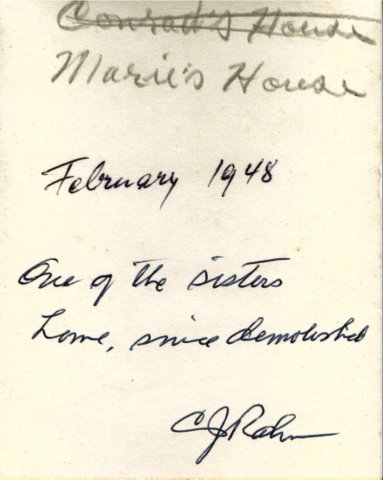 Conrad's House
Marie's House
February 1948
One of the sisters
home, since demolished
CJ Rahn